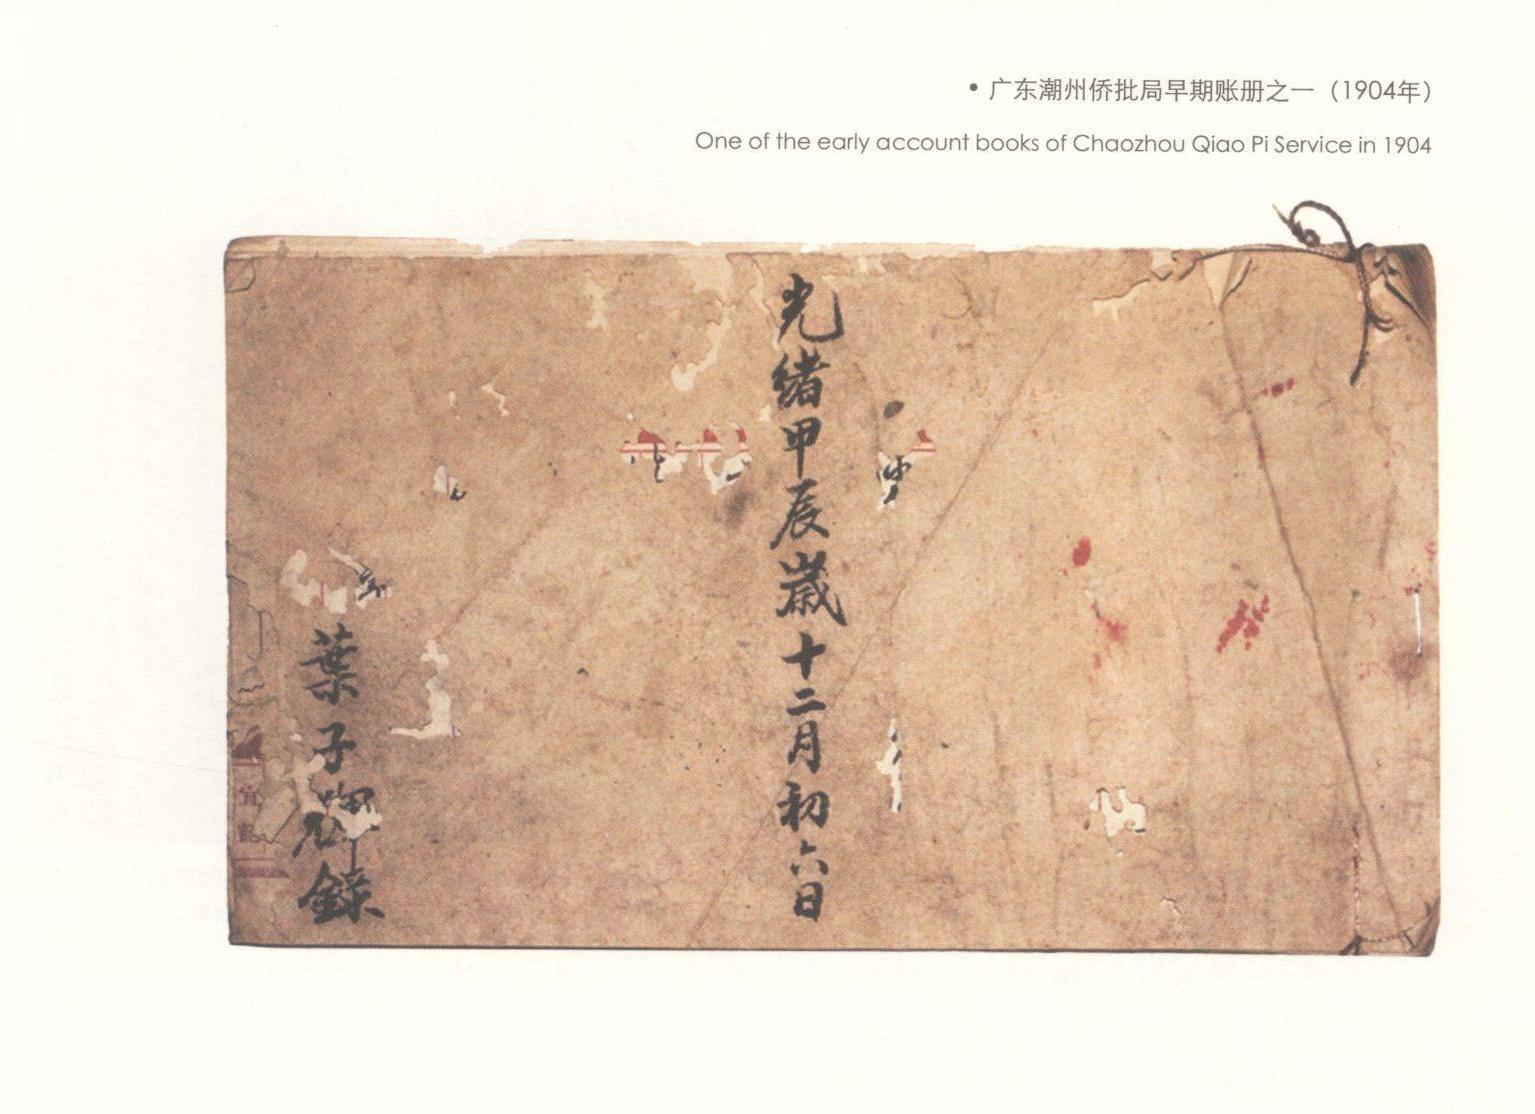 • 广东潮州侨批局早期账册之一（1904年）
One of the early account books of Chaozhou Qiao Pi Service in 1904
光緒甲辰歲十二月初六日
葉子錄
宜